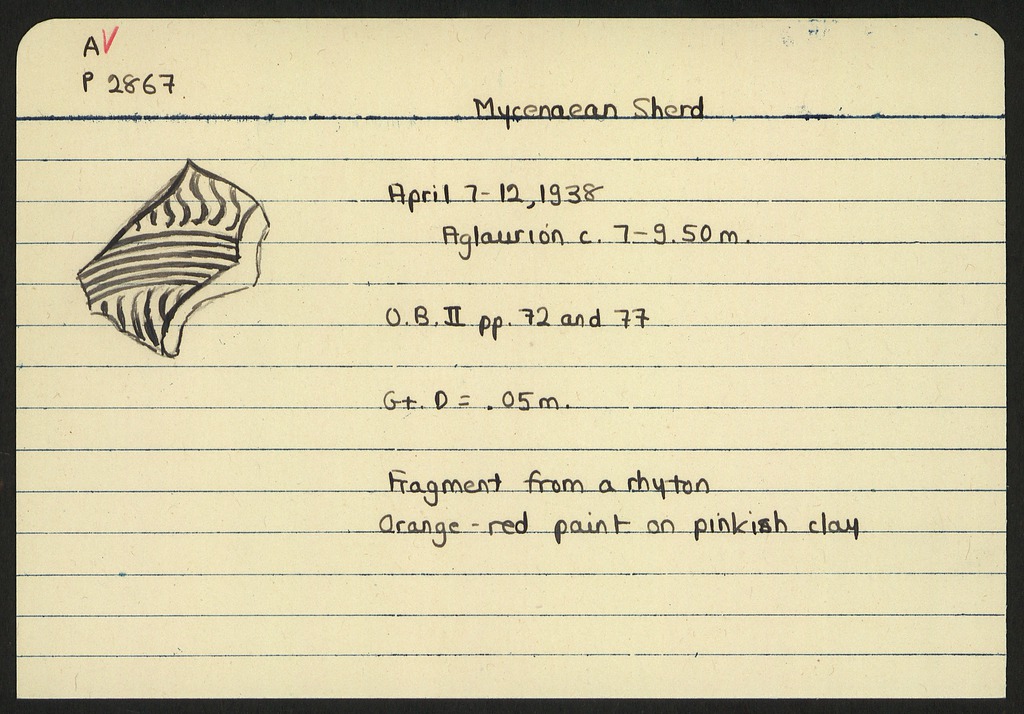 A
P 2867
Mycenaean Sherd
April 7-12, 1938
Aglaurion c. 7-9.50m.
O.B. II pp. 72 and 77
Gt. D = .05m.
Fragment from a rhyton
Orange-red paint on pinkish clay